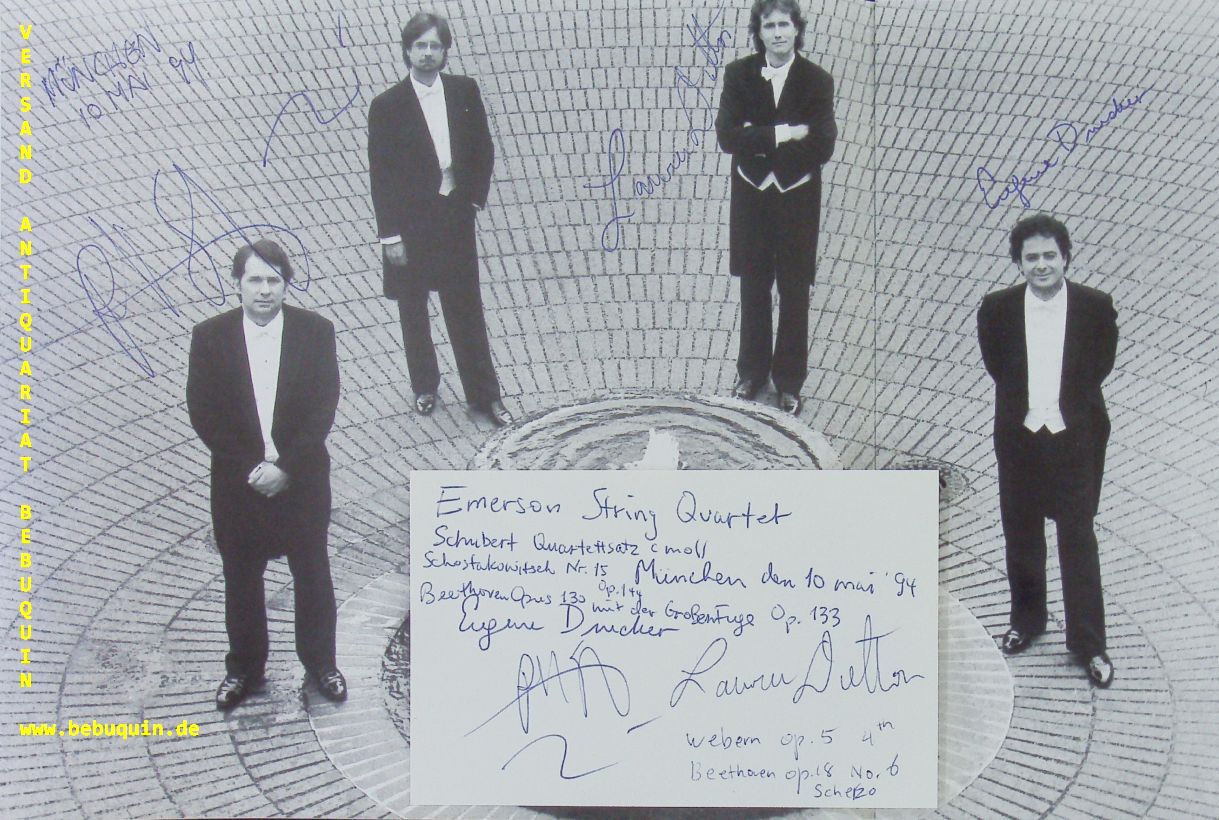 VERSAND ANTIQUARIAT BEBUQUIN
www.bebuquin.de
MÜNCHEN
10 MAI 94
Lawrence Dutton
Eugene Drucker
Emerson String Quartet
Schubert Quartettsatz c moll
Schostakowitsch Nr. 15 Op. 144
München den 10 mai '94
Beethoven Opus 130 mit der Großenfuge Op. 133
Eugene Drucker
Lawrence Dutton
Webern op. 5 4th
Beethoven op. 18 No. 6
Scherzo